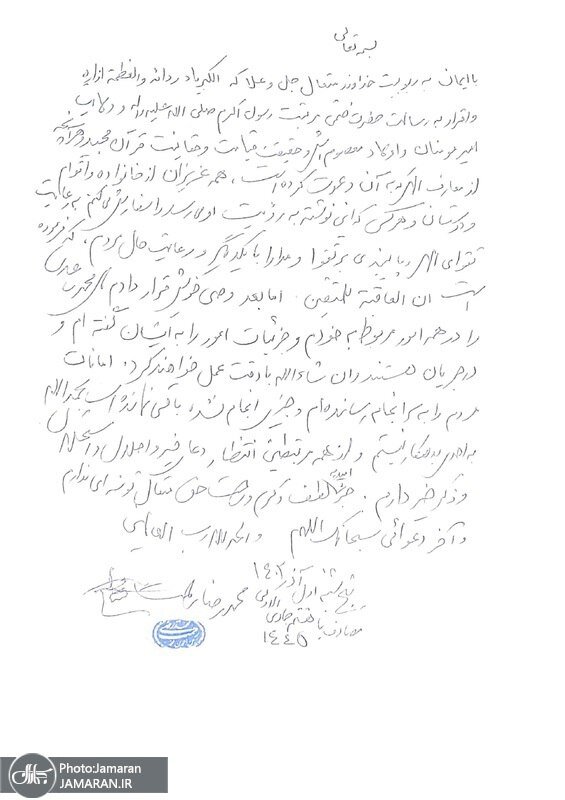 بسمه تعالی
با ایمان به ربوبیت خداوند متعال جل و علا که الکبریاء ردائه والعظمة ازاره
و اقرار به رسالت حضرت ختمی مرتبت رسول اکرم صلی الله علیه و اله و ولایت
امیر مومنان و اولاد معصوم اش و حقیقت قیامت و حقانیت قرآن مجید و هر آنچه
از معارف الهی که به آن دعوت کرده است، همه عزیزان از خانواده و اقوام
و دوستان و هر کسی که این نوشته به رؤیت او می رسد را سفارش می کنم به رعایت
تقوای الهی و پایبندی بر تقوا و مدارا با یکدیگر و رعایت حال مردم، که فرموده
است ان العاقبة للمتقین. اما بعد وصی خویش قرار دادم
را در همه امور مربوط به خودم و جزئیات امور را به ایشان گفته ام و
در جریان هستند و ان شاء الله با دقت عمل خواهند کرد. امانات
مردم را به سرانجام رسانده ام و چیزی انجام نشده باقی نمانده است بحمدالله
به احدی بدهکار نیستم و از همه مرتبطین انتظار دعای خیر و احلال و استحلال
و ذکر خیر دارم. جز امید به لطف و کرم و رحمت حق متعال توشه ای ندارم
و آخر دعوائی سبحانک اللهم والحمدلله رب العالمین
پنج شنبه اول آذر ۱۴۰۲
مصادف با هفتم جمادی الاولی
محمدرضا
۱۴۴۵
Photo:Jamaran
JAMARAN.IR